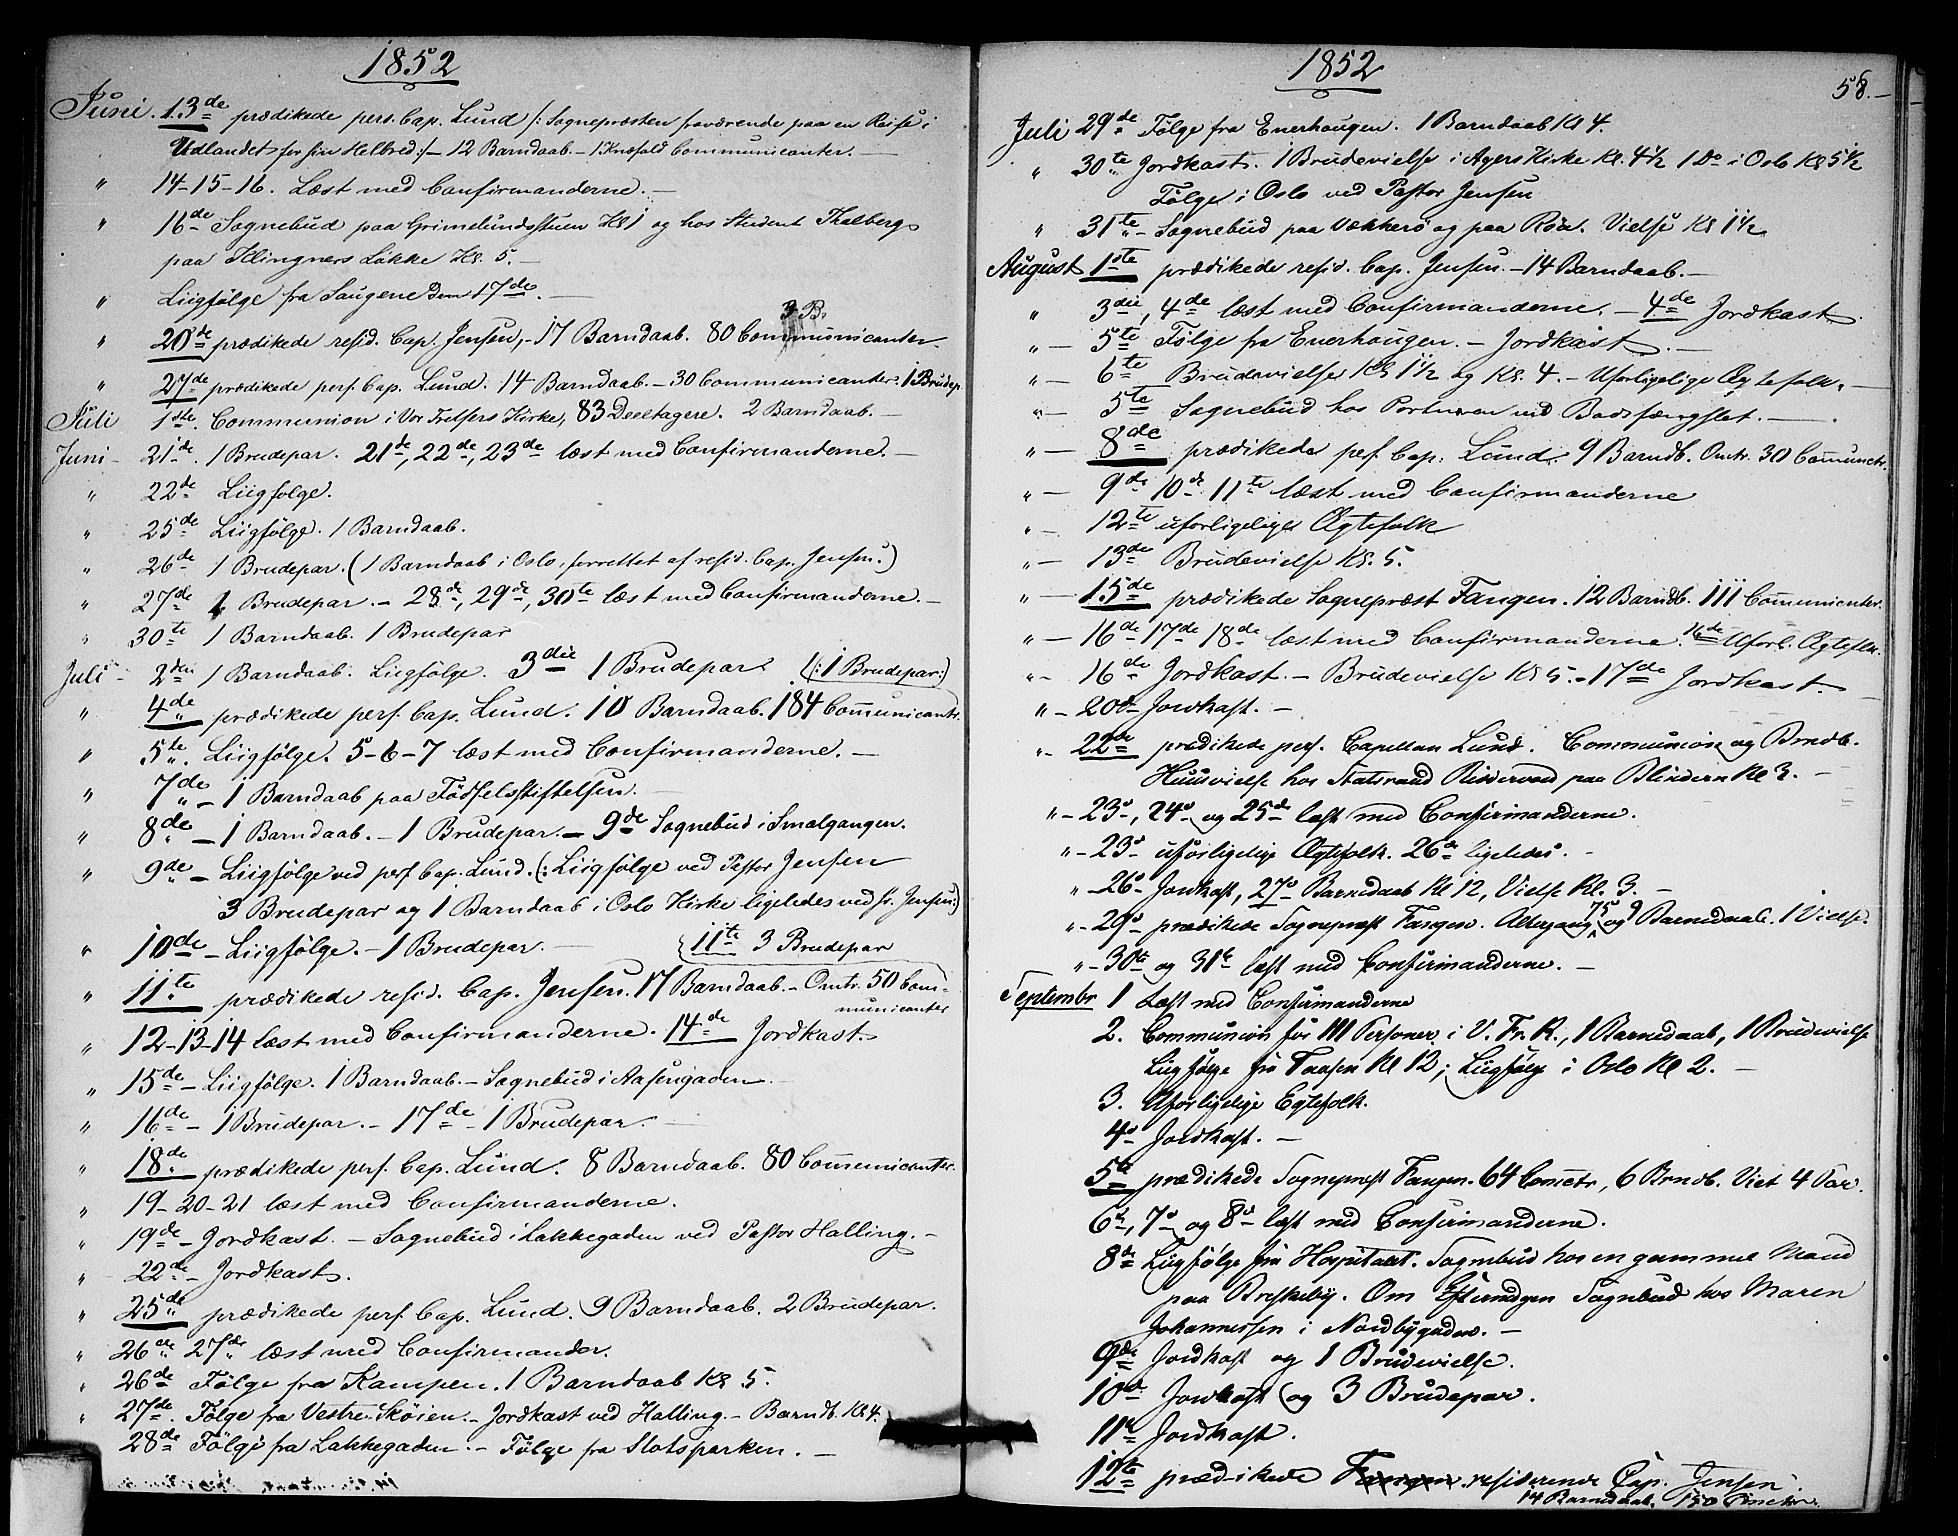 1852
Juni. 13de prædikede pers. Cap. Lund /: Sognepræsten fraværende paa en Reise i
Udlandet for sin Helbred :/ - 12 Barndaab. - 1 Knæfald Communicanter. -
" 14-15-16. Læst med Confirmanderne. -
" 16de Sognebud paa Grimelundsstuen Kl 1 og hos Student Thalberg
paa Klingners Løkke Kl. 5. -
" Liigfølge fra Saugene den 17de. -
3 B.
" 20de prædikede resid. Cap. Jensen, - 17 Barndaab. 80 Communicanter.
" 27de prædikede pers. Cap. Lund. 14 Barndaab. - 30 Communicanter. 1 Brudep.
Juli 1ste. Communion i Vor Frelsers Kirke, 83 Deeltagere. 2 Barndaab. -
Juni - 21de. 1 Brudepar. 21de, 22de, 23de læst med Confirmanderne. -
" 22de Liigfølge.
" 25de Liigfølge. 1 Barndaab.
" 26de 1 Brudepar. (1 Barndaab i Oslo, forrettet af resid. Cap. Jensen.)
" 27de 1 Brudepar. - 28de, 29de, 30te læst med Confirmanderne -
" 30te 1 Barndaab. 1 Brudepar
Juli - 2den 1 Barndaab. Liigfølge. 3die 1 Brudepar. (: 1 Brudepar :)
" 4de prædikede pers. Cap. Lund. 10 Barndaab. 184 Communicantr.
" 5te. Liigfølge. 5-6-7 læst med Confirmanderne. -
" 7de - 1 Barndaab paa Fødselsstiftelsen. -
" 8de - 1 Barndaab. - 1 Brudepar. - 9de Sognebud i Smalgangen.
" 9de - Liigfølge ved pers. Cap. Lund. (: Liigfølge ved Pastor Jensen
3 Brudepar og 1 Barndaab i Oslo Kirke ligeledes ved Hr. Jensen :)
" 10de - Liigfølge. - 1 Brudepar. - 11te 3 Brudepar
" 11te prædikede resid. Cap. Jensen. 17 Barndaab. - Omtr. 50 Com-
municanter
" 12-13-14 læst med Confirmanderne. 14de Jordkast.
" 15de - Liigfølge. 1 Barndaab. - Sognebud i Aasengaden. -
" 16de - 1 Brudepar. - 17de - 1 Brudepar. -
" 18de. prædikede pers. Cap. Lund. 8 Barndaab. 80 Communicanter.
" 19-20-21 læst med Confirmanderne.
" 19de - Jordkast. - Sognebud i Lakkegaden ved Pastor Halling. -
" 22de - Jordkast.
" 25de prædikede pers. Cap. Lund. 9 Barndaab. 2 Brudepar.
" 26de 27de læst med Confirmander.
" 26de Følge fra Kampen. 1 Barndaab Kl 5.
" 27de. Følge fra Vestre Skøien. - Jordkast ved Halling. - Barndb. Kl 4.
" 28de Følge fra Lakkegaden. - Følge fra Slotsparken. -
1852
58. -
Juli 29de Følge fra Enerhougen. 1 Barndaab Kl 4.
" 30te Jordkast. 1 Brudevielse i Agers Kirke Kl. 4½ 1 Do i Oslo Kl 5½
Følge i Oslo ved Pastor Jensen
" 31te - Sognebud paa Vækkerø og paa Røa. Vielse Kl 1½
August 1ste prædikede resid. Cap. Jensen. - 14 Barndaab. -
" 3die, 4de læst med Confirmanderne. - 4de Jordkast.
" - 5te Følge fra Enerhougen. - Jordkast. -
" - 6te Brudevielse Kl 1½ og Kl. 4. - Uforligelige Ægtefolk. -
" - 5te Sognebud hos Portneren ved Bodsfængslet. -
" - 8de prædikede pers. Cap. Lund. 9 Barndb. Omtr. 30 Communctr.
" - 9de 10de 11te læst med Confirmanderne
" - 12te uforligelige Ægtefolk
" - 13de Brudevielse Kl. 5.
" - 15de prædikede Sognepræst Fangen. 12 Barndb. 111 Communicenter.
" - 16de 17de 18de læst med Confirmanderne. 16de Uforl. Ægtefolk.
" - 16de Jordkast. - Brudevielse Kl 5. - 17de Jordkast. -
" - 20de Jordkast. -
" - 22de prædikede pers. Capellan Lund. Communion og Brndb.
Huusvielse hos Statsraad Riddervold paa Blindern Kl 3. -
" - 23de, 24de og 25de læst med Confirmanderne.
" - 23de uforligelige Ægtefolk. 26de ligeledes. -
" - 26de Jordkast, 27de Barnedaab Kl 12, Vielse Kl. 3. -
" - 29de prædikede Sognepræst Fangen. Altergang 75 og 9 Barnedaab. 1 Vielse.
" - 30te og 31te læst med Confirmanderne. -
Septembr 1 Læst med Confirmanderne
2. Communion for 111 Personer i V. Fr. K., 1 Barnedaab, 1 Brudevielse
Liigfølge fra Taasen Kl 12; Liigfølge i Oslo Kl 2. -
3. Uforligelige Egtefolk.
4de Jordkast. -
5te prædikede Sognepræst Fangen. 64 Cometr, 6 Brndb. Viet 4 Par.
6te, 7de og 8de læst med Confirmanderne.
8de Liigfølge fra Hospitalet. Sognebud hos en gammel Mand
paa Briskeby. Om Eftermdgen Sognebud hos Maren
Johannessen i Nordbygaden. -
9de Jordkast og 1 Brudevielse.
10de Jordkast og 3 Brudepar.
11te Jordkast.
12te prædikede residerende Cap. Jensen.
14 Barnedaab. 150